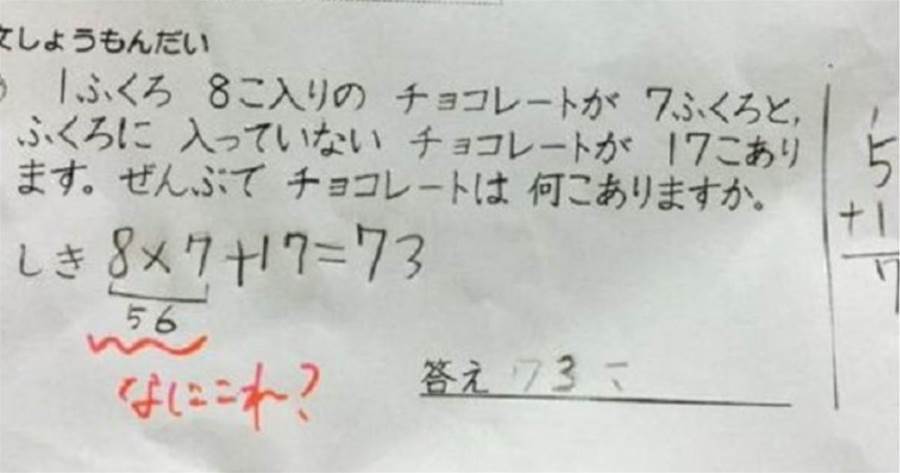 文しょうもんだい
1ふくろ 8こ入りの チョコレートが 7ふくろと,
ふくろに 入っていない チョコレートが 17こあり
ます。ぜんぶで チョコレートは 何こありますか。
しき 8×7+17=73
56
なにこれ?
答え 73こ
5
+1
7